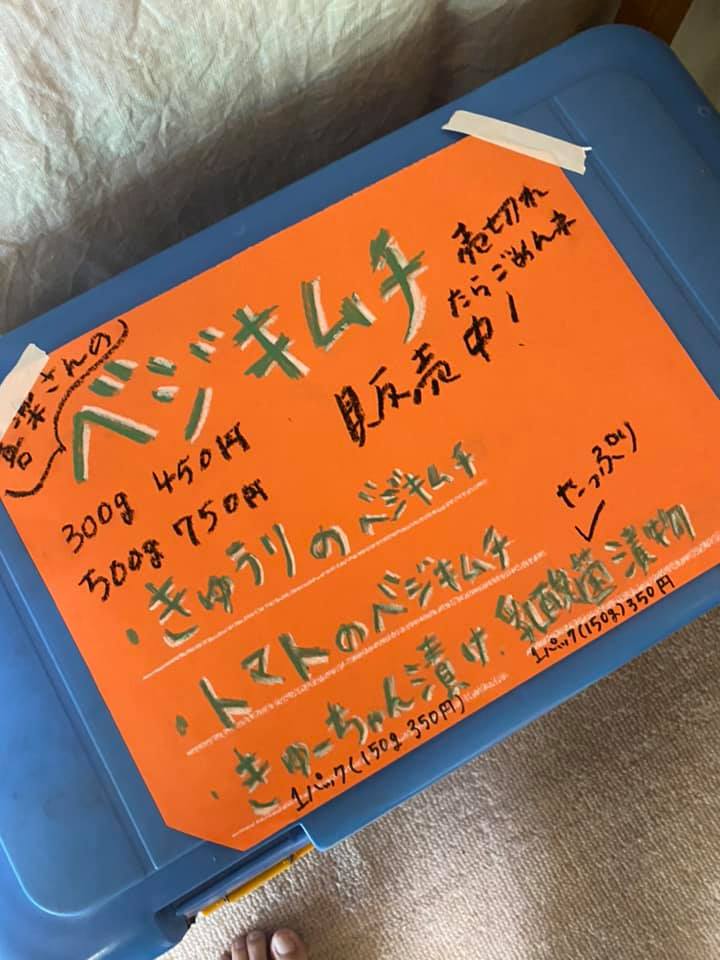 さんの
ベジキムチ
売切れ
たらごめんネ
販売中！
300g 450円
500g 750円
・きゅうりのベジキムチ
・トマトのベジキムチ
たっぷり
・きゅーちゃん漬け、乳酸菌漬物
1パック(150g 350円)
1パック(150g)350円